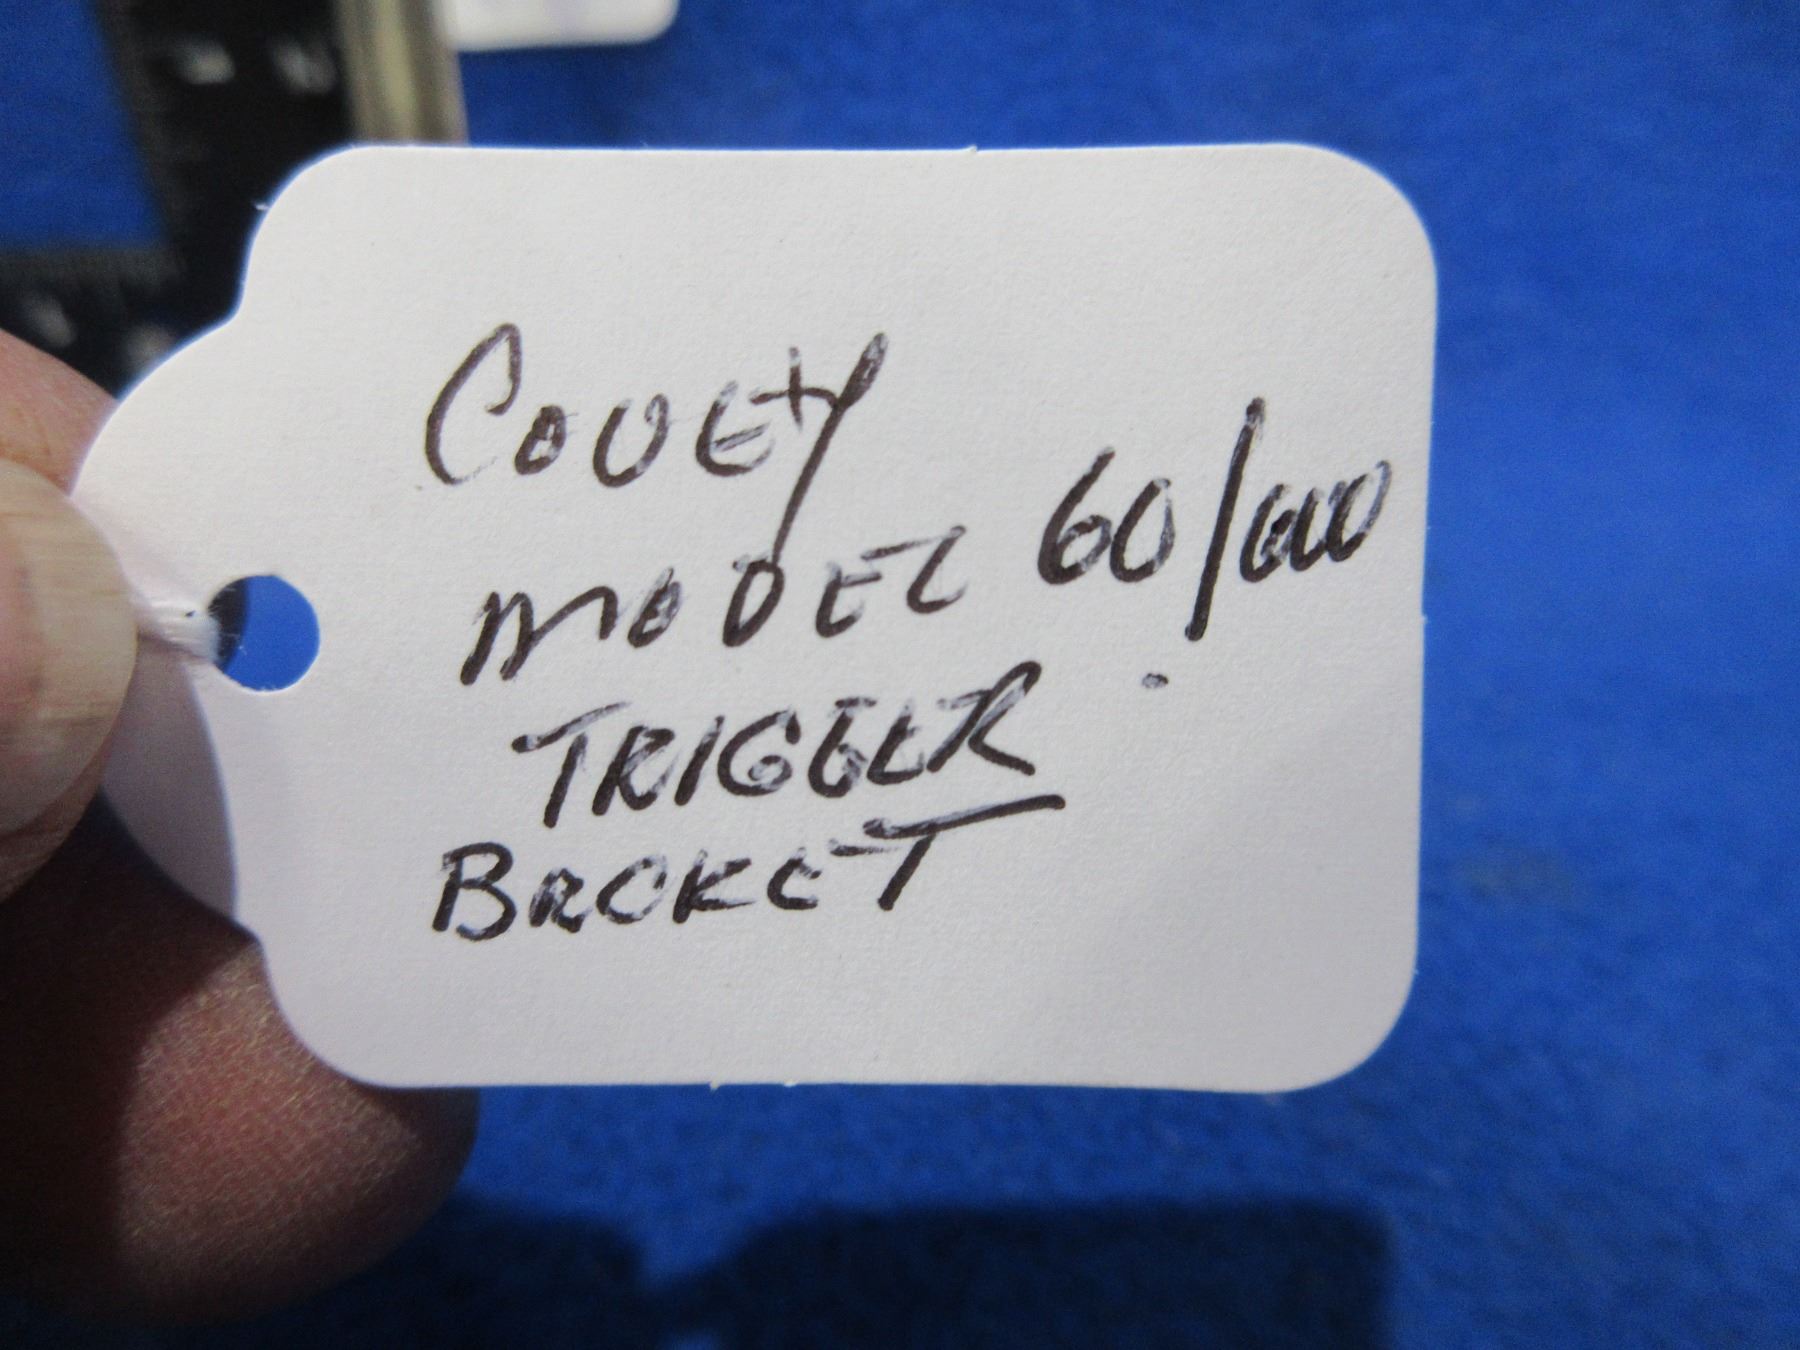 COOEY
MODEL 60/600
TRIGGER
BRCKET